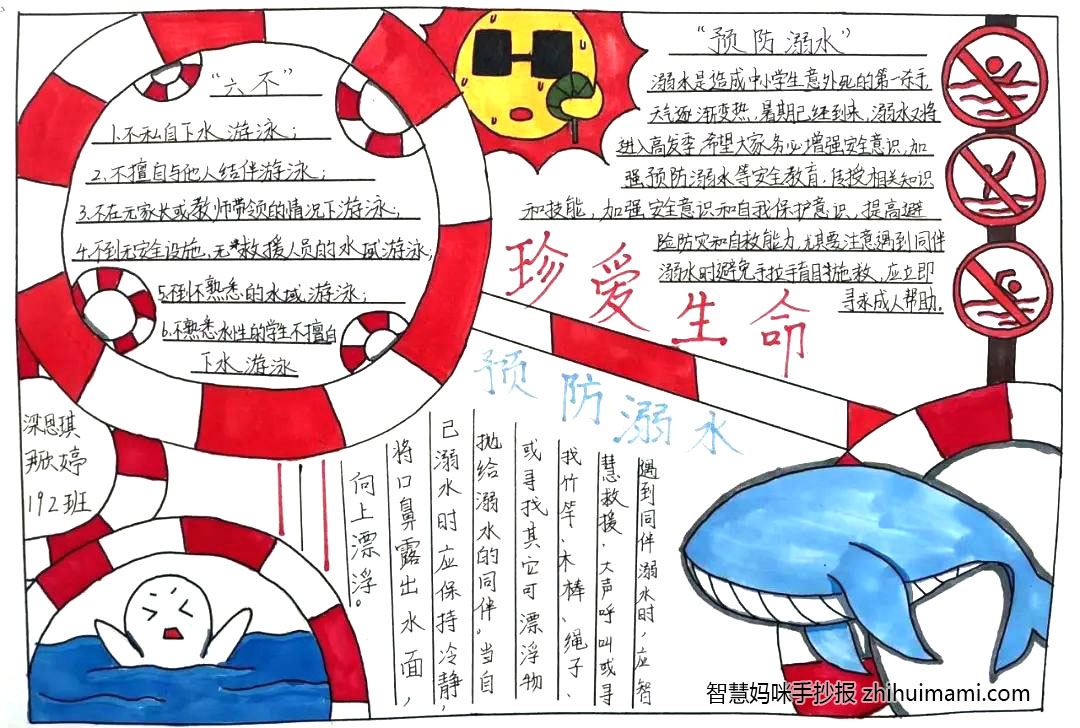 “六不”
1.不私自下水游泳；
2.不擅自与他人结伴游泳；
3.不在无家长或教师带领的情况下游泳；
4.不到无安全设施、无救援人员的水域游泳；
5.不到不熟悉的水域游泳；
6.不熟悉水性的学生不擅自
下水游泳
“预防溺水”
溺水是造成中小学生意外死的第一杀手,
天气逐渐变热,暑期已经到来,溺水又将
进入高发季,希望大家务必增强安全意识,加
强预防溺水等安全教育,传授相关知识
和技能,加强安全意识和自我保护意识,提高避
险防灾和自救能力,尤其要注意遇到同伴
溺水时避免手拉手盲目施救,应立即
寻求成人帮助.
珍爱生命
预防溺水
遇到同伴溺水时,应智
慧救援、大声呼叫或寻
找竹竿、木棒、绳子、
或寻找其它可漂浮物
抛给溺水的同伴。当自
己溺水时应保持冷静,
将口鼻露出水面,
向上漂浮。
梁思琪
婷
192班
智慧妈咪手抄报 zhihuimami.com